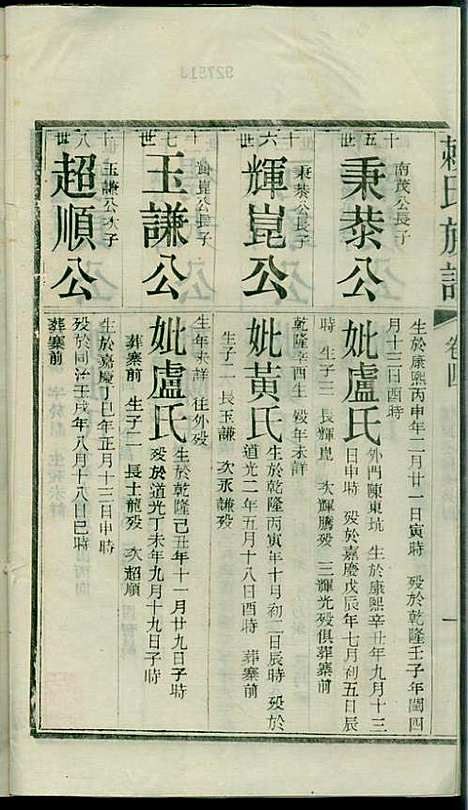 賴氏族譜
卷四
一
十五世
秉恭公
南茂公長子
生於康熙丙申年二月廿一日寅時 殁於乾隆壬子年閏四
月十三日酉時
妣盧氏
外門陳東坑 生於康熙辛丑年九月十三
日申時 殁於嘉慶戊辰年七月初五日辰
時 生子三 長輝崑 次輝騰殁 三輝光殁俱葬寨前
十六世
輝崑公
秉恭公長子
乾隆辛酉生 殁年未詳
妣黃氏
生於乾隆丙寅年十月初二日辰時 殁於
道光二年五月十八日酉時 葬寨前
生子二 長玉謙 次永謙殁
十七世
玉謙公
崑公長子
生年未詳 往外殁
妣盧氏
生於乾隆己丑年十一月廿九日子時
殁於道光丁未年九月十九日子時
葬寨前 生子二 長士龍殁 次超順
十八世
超順公
玉謙公次子
生於嘉慶丁巳年正月十三日申時
殁於同治壬戌年八月十八日巳時
葬寨前